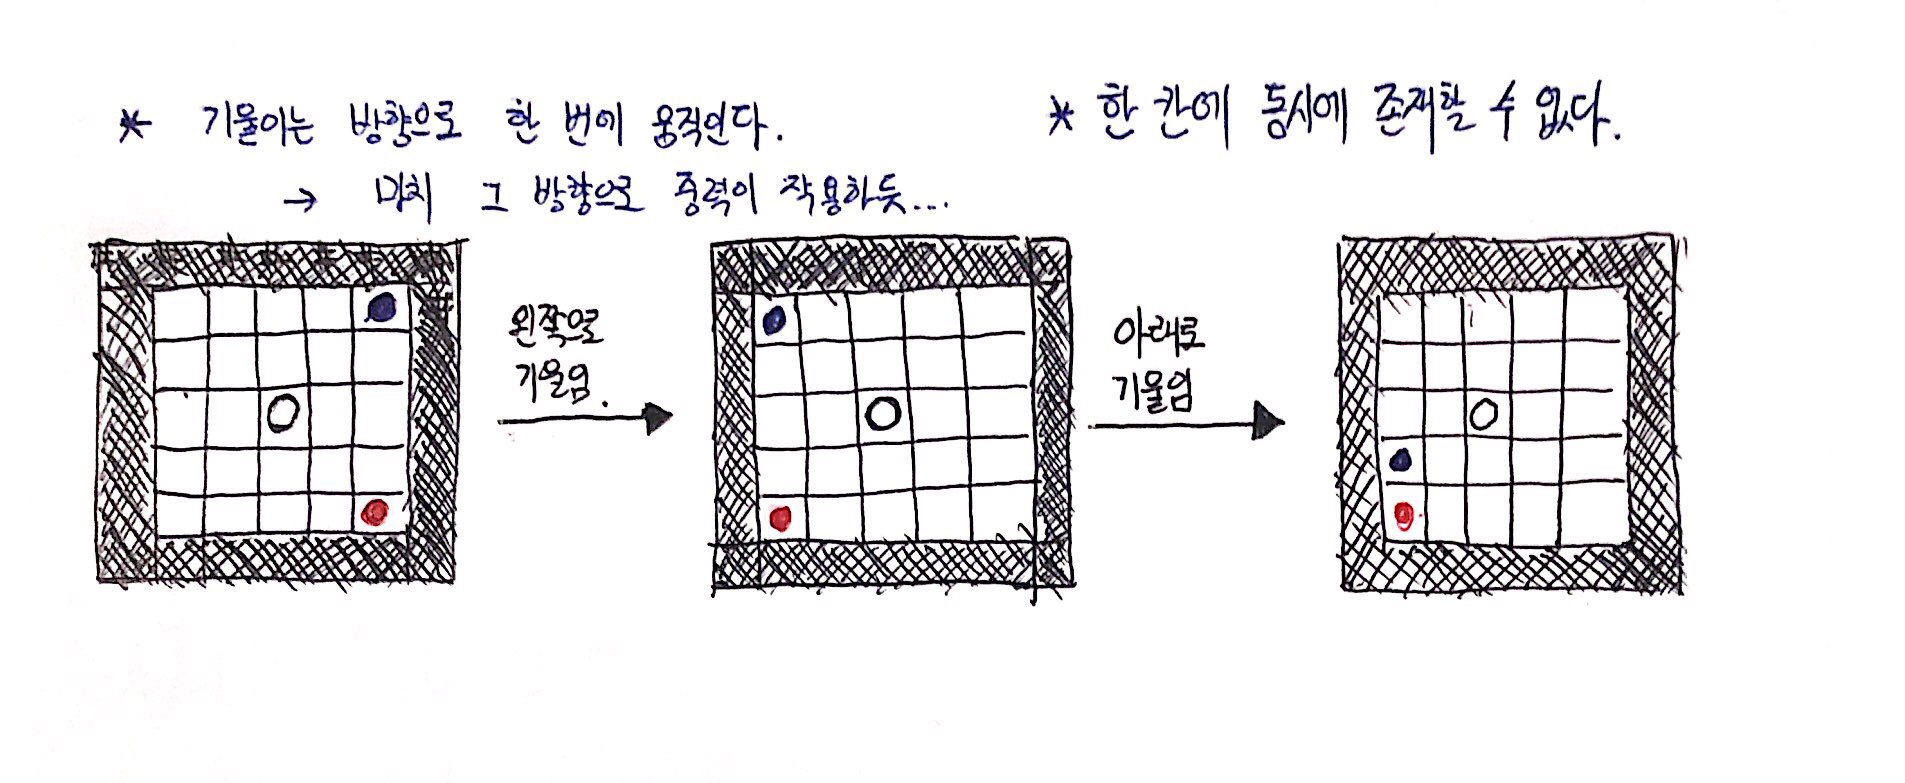 * 기울이는 방향으로 한 번에 움직인다.
→ 마치 그 방향으로 중력이 작용하듯...
* 한 칸에 동시에 존재할 수 없다.
왼쪽으로
기울임.
아래로
기울임